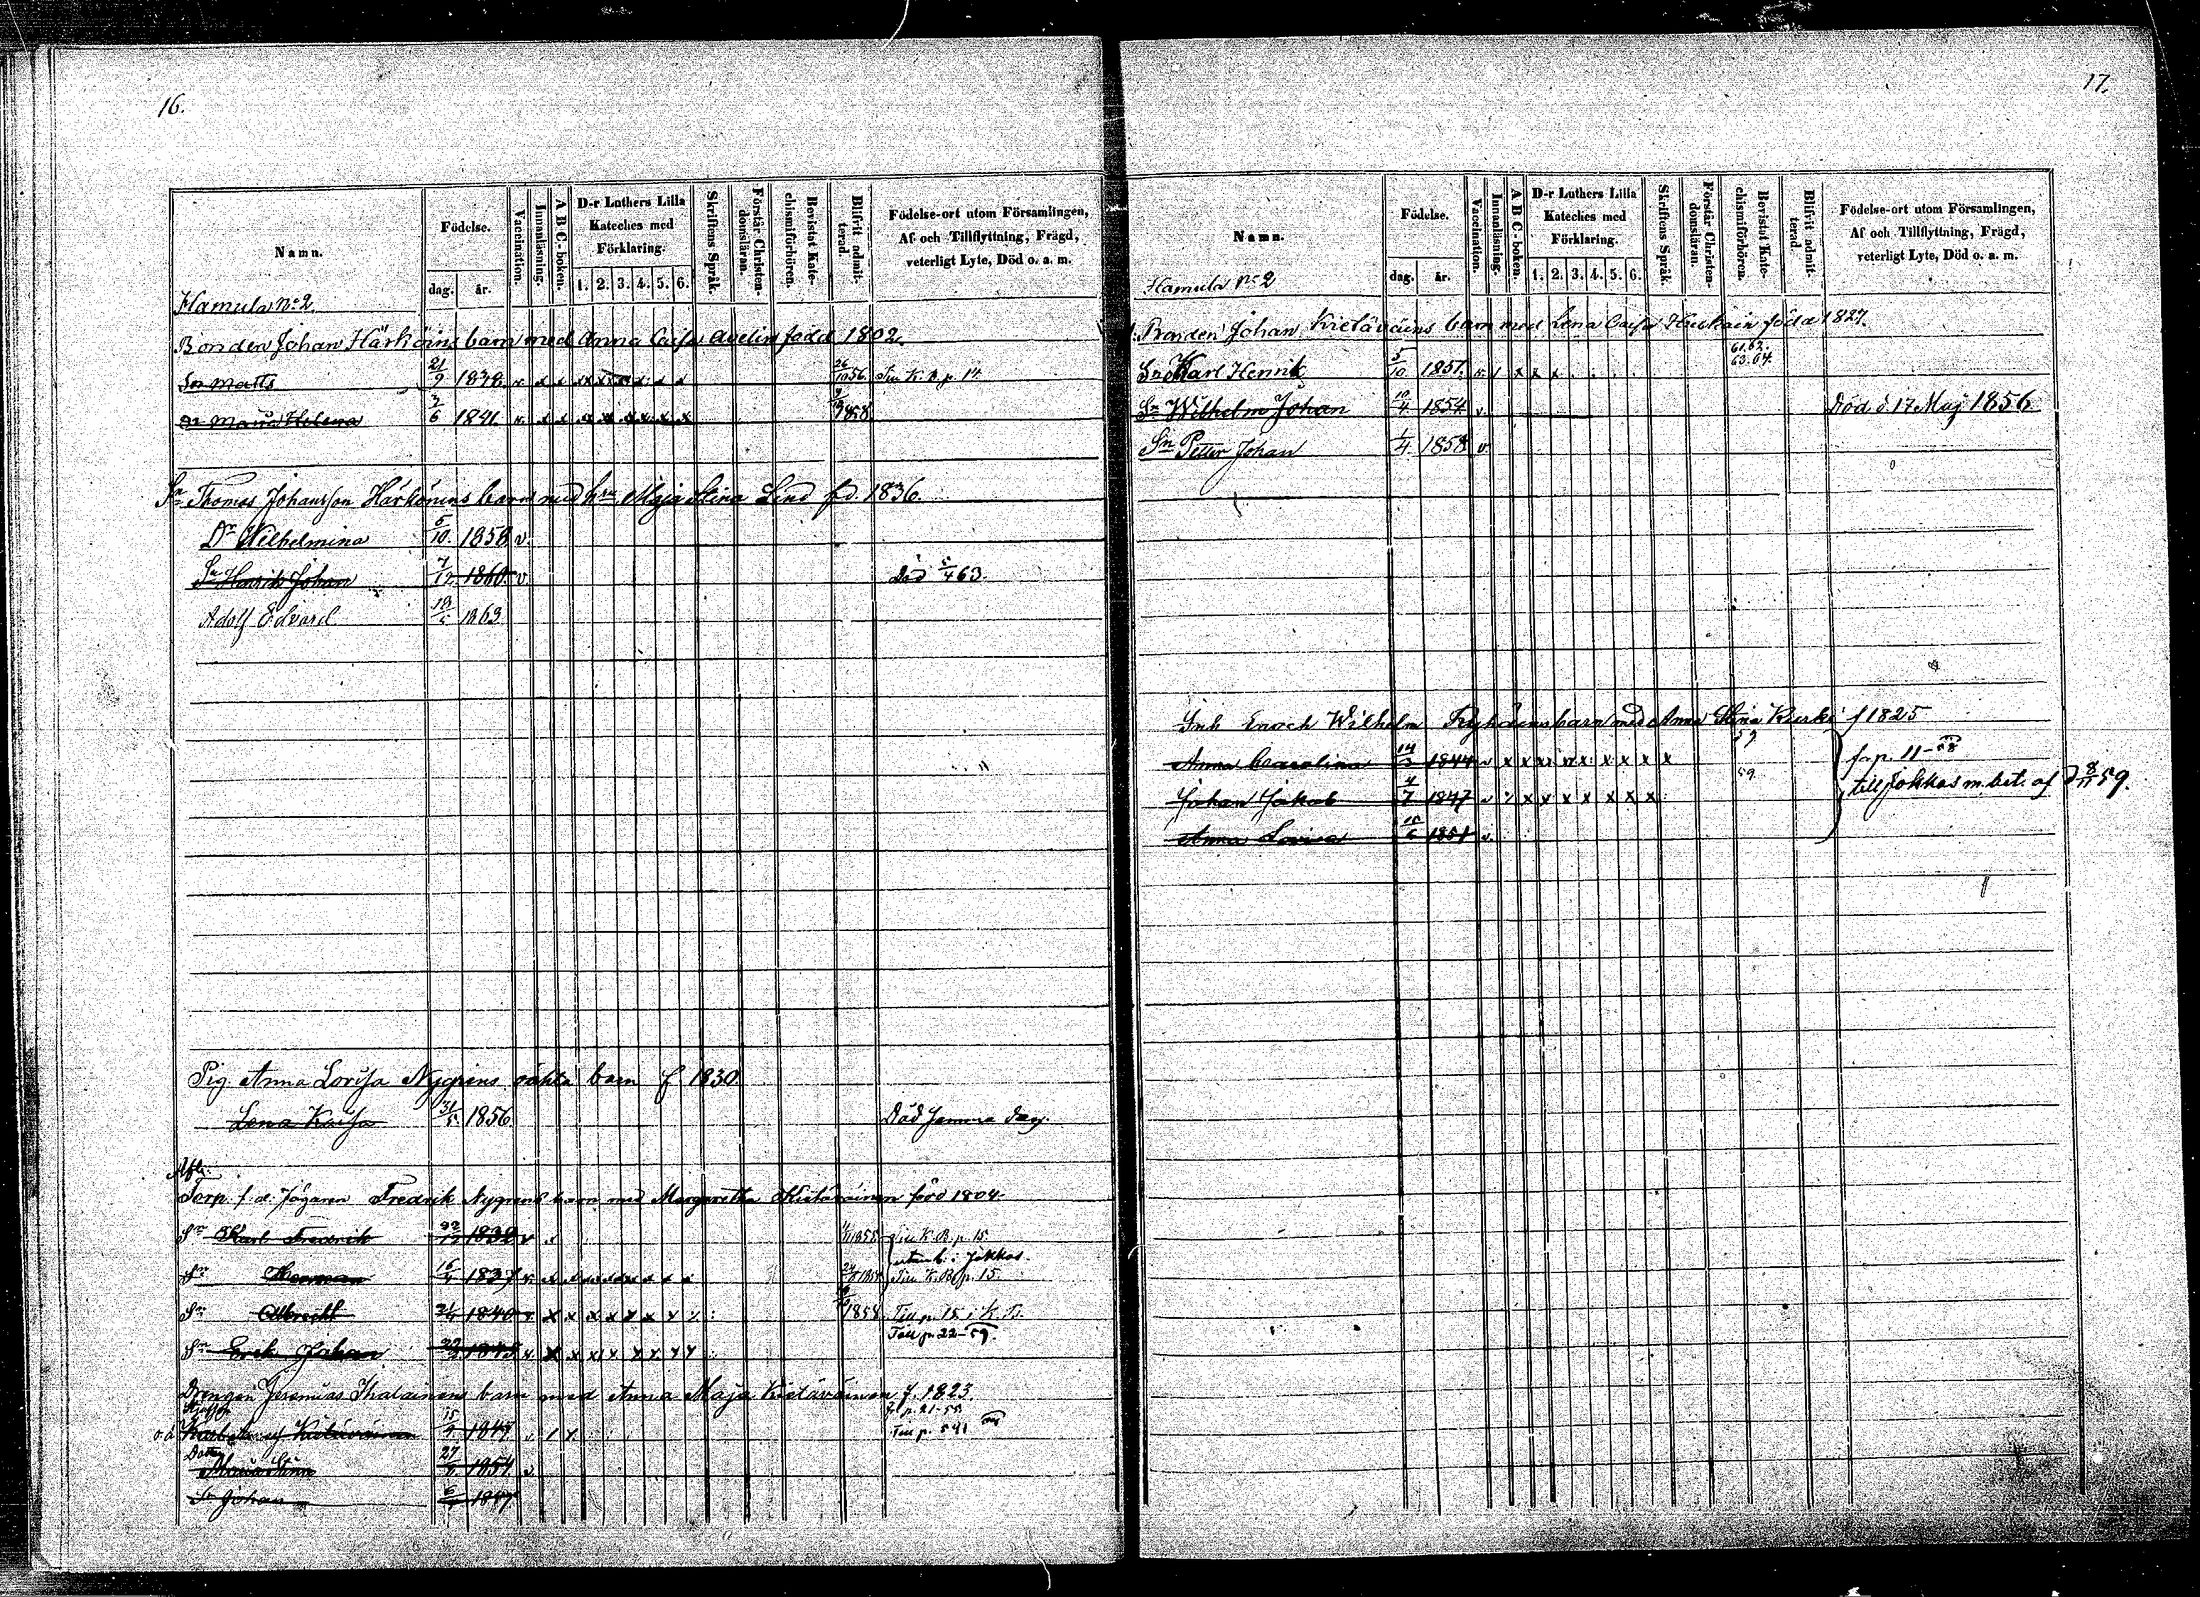 16.
Namn. Födelse. dag. år. Vaccination. Innanläsning. A B C-boken. D-r Luthers Lilla Kateches med Förklaring. 1. 2. 3. 4. 5. 6. Skriftens Språk. Förstår Christendomsläran. Bevistat Katechismiförhören. Blifvit admitterad. Födelse-ort utom Församlingen, Af och Tillflyttning, Frägd, veterligt Lyte, Död o. a. m.
Hamula No 2.
Bonden Johan Härköins barn med Anna Caisa Avelin född 1802.
Son Matts 21/9 1838. v. x x x x x x x x 26/10 56. Till K. B. p. 14
Dr Maria Helena 7/6 1841. v. x x x x x x x x 1858.
Sn Thomas Johansson Härkönens barn med hu Maja Stina Lind fd. 1836.
Dr Wilhelmina 5/10. 1858 v.
Sn Henrik Johan 1860. v. Död 5/4 63.
Adolf Edvard 18/5 1863
Pig. Anna Lovisa Nygrens oächta barn f 1830
Lena Kaisa 31/5 1856 Död samma dag.
Afl.
Torp. f. d. Jägaren Fredrik Nygrens barn med Margaretha Kietäväinen född 1804
Sn Karl Fredrik 22/12 1832 v. Till K. B. p. 15.
i Jokkas.
Sn Herman 16/4 1837 v. Till K. B. p. 15.
Sn Albrecht 24/4 1840 v. x x x x x x x 1858. Till p. 15 i K. B.
Till p. 22-59.
Sn Erik Johan 1845 v. x x x x x x x
Drengen Jeremias Ihalainens barn med Anna Maja Kietäväinen f. 1823.
fr p. 21-55
o. ä. Kietäväinen 15/4 1847 v Till p. 541
Dotter Maria Stina 27/8 1854. v
Sn Johan 1857
17.
Namn. Födelse. dag. år. Vaccination. Innanläsning. A B C-boken. D-r Luthers Lilla Kateches med Förklaring. 1. 2. 3. 4. 5. 6. Skriftens Språk. Förstår Christendomsläran. Bevistat Katechismiförhören. Blifvit admitterad. Födelse-ort utom Församlingen, Af och Tillflyttning, Frägd, veterligt Lyte, Död o. a. m.
Hamula No 2
Bonden Johan Kietäväins barn med Lena Caisa född 1827.
Karl Henrik 5/10 1851. v. x x x 61.62. 63.64.
Sn Wilhelm Johan 10/4 1854 v. Död d. 17 Maj 1856
Sn Petter Johan 1/4 1858 v.
Inh Enoch Wilhelm barn med Anna Stina Kurki f 1825
Anna Carolina 14/3 1844 v x x x x x x x x 59. fr. p. 11-58
Johan Jakob 4/7 1847 v x x x x x x x 59. till Jokkas m. bet. af d 8/11 59.
Anna Lovisa 15/6 1851 v.